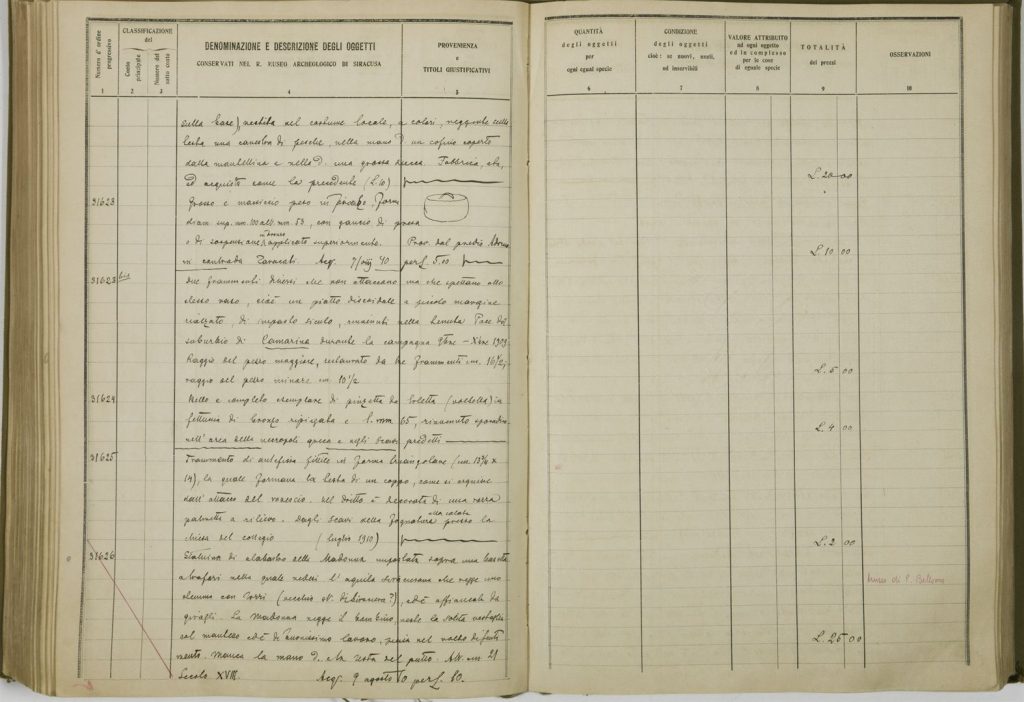 Numero d'ordine progressivo
CLASSIFICAZIONE
del
Conto principale
Numero del sotto conto
DENOMINAZIONE E DESCRIZIONE DEGLI OGGETTI
CONSERVATI NEL R. MUSEO ARCHEOLOGICO DI SIRACUSA
PROVENIENZA
e
TITOLI GIUSTIFICATIVI
1 2 3 4 5
sulla base), vestita nel costume locale, a colori, reggente sulla
testa una canestra di pesche, nella mano un cofino coperto
dalla mantellina e nella d. una grossa Fabbrica, età,
ed acquisto come la precedente (L. 10)
31623
Grosso e massiccio peso in Forma
diam. sup. mm. 100 alt. mm. 53, con gancio di presa
o di sospensione in bronzo applicato superiormente. Prov. dal predio
in contrada Zaracati. Acq. 7/VIII 10 per L. 5.00
31623 bis
due frammenti diversi che non attaccano ma che spettano allo
stesso vaso, cioè un piatto discoidale a piccolo margine
rialzato, di impasto siculo, rinvenuti nella tenuta Pace del
suburbio di Camarina durante la campagna 9bre - Xbre 1909
Raggio del pezzo maggiore, restaurato da tre frammenti cm. 16 1/2;
raggio del pezzo minore cm. 10 1/2
31624
Bello e completo esemplare di pinzetta da toletta (volsella) in
fettuccia di bronzo ripiegata e l. mm 65, rinvenuto sporadico
nell'area della necropoli greca e negli scavi predetti
31625
Frammento di antefissa fittile in forma triangolare (cm. 13 3/4 x
14), la quale formava la testa di un coppo, come si arguisce
dall'attacco del rovescio. Nel dritto è decorata di una rozza
palmetta a rilievo. Dagli scavi della fognatura alla calata presso la
chiesa del collegio (luglio 1910)
31626
Statuina di alabastro della Madonna impostata sopra una basetta
nella quale vedesi l'aquila siracusana che regge uno
stemma con torri (vecchio ), ed è affiancata da
La Madonna regge il bambino, veste la solita
col mantello ed è di buonissimo lavoro, specie nel volto di
Manca la mano d. e la testa del putto. Alt. cm 21
Secolo XVIII. Acq. 9 agosto 10 per L. 60.
QUANTITÀ
degli oggetti
per
ogni egual specie
CONDIZIONE
degli oggetti
cioè: se nuovi, usati,
od inservibili
VALORE ATTRIBUITO
ad ogni oggetto
ed in complesso
per le cose
di eguale specie
TOTALITÀ
dei prezzi
OSSERVAZIONI
6 7 8 9 10
L. 20 00
L. 10 00
L. 5 00
L. 4 00
L. 2 00
Museo di P. Bellomo
L. 25 00